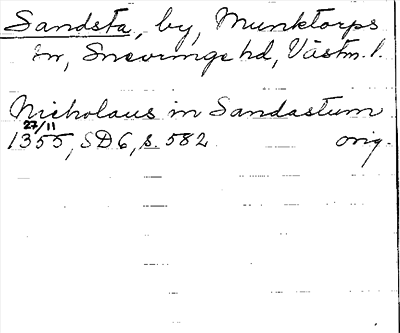 Sandsta, by, Munktorps
sn, Snevringe hd, Västm. l.
Nicholaus in Sandastum
27/11
1355, SD6, s. 582 orig.